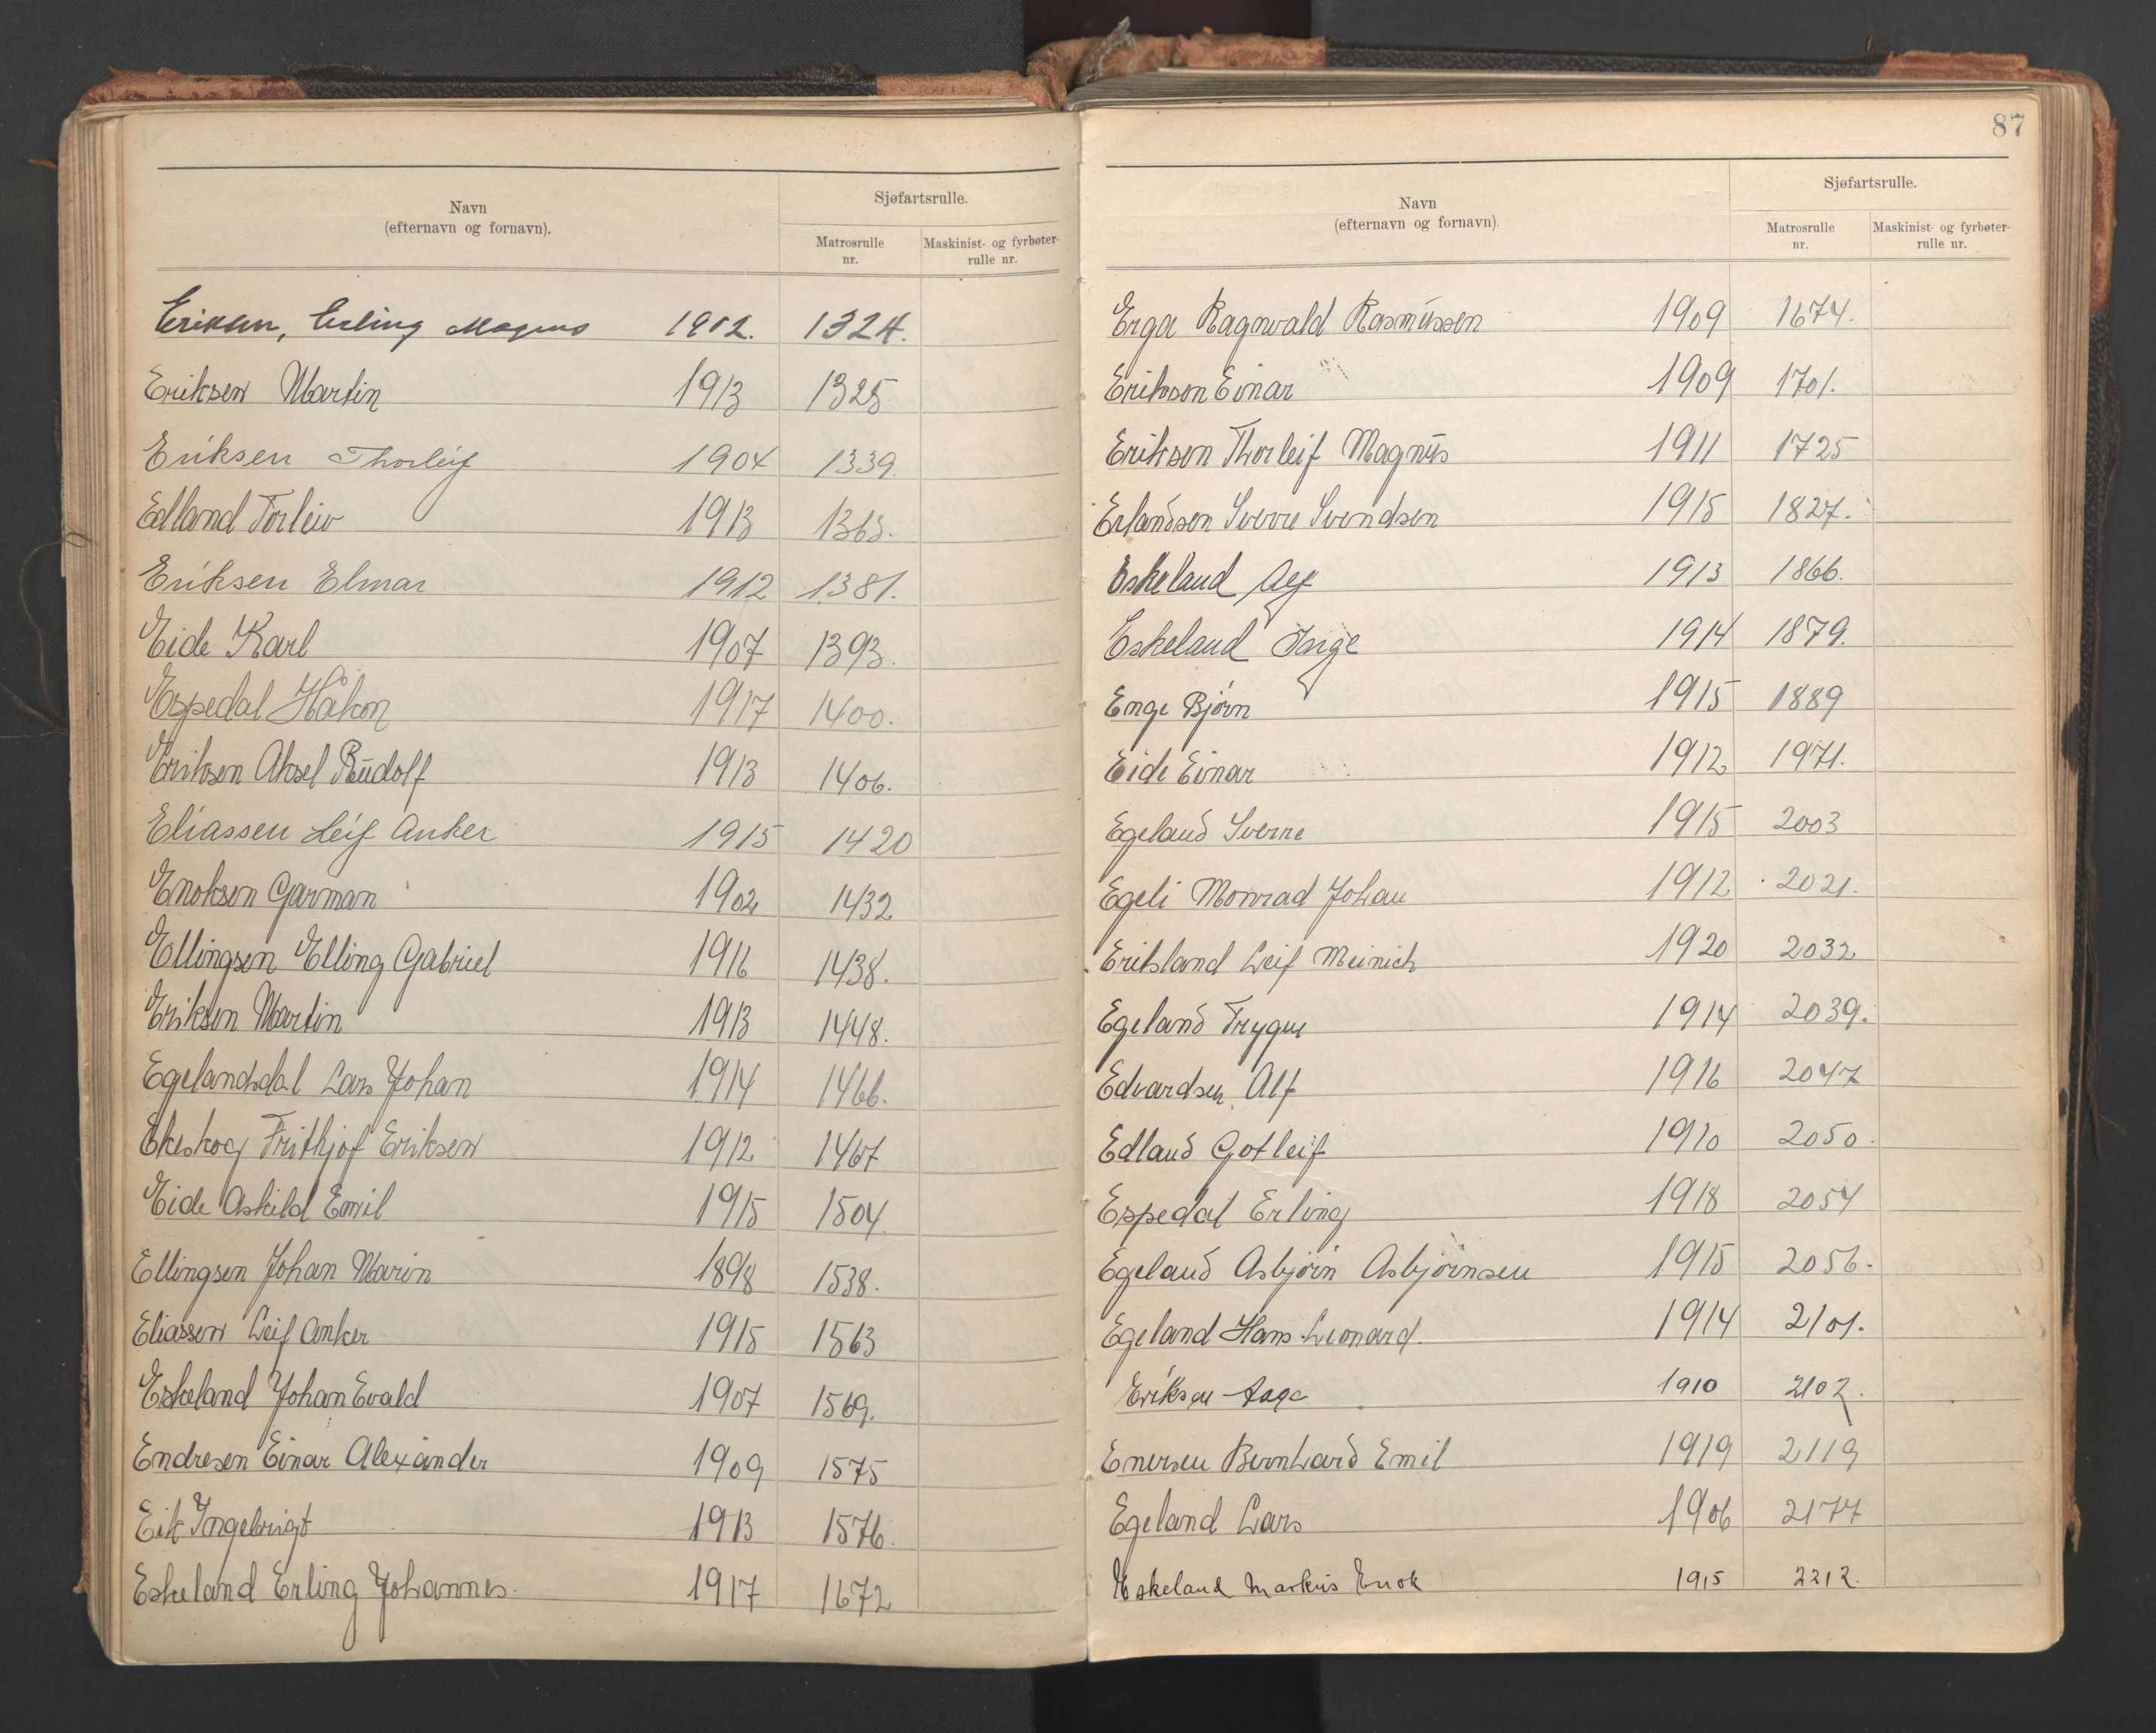 Navn
(efternavn og fornavn).
Sjøfartsrulle.
Matrosrulle nr.
Maskinist- og fyrbøter-rulle nr.
Eriksen, Erling Magnus 1902. 1324.
Eriksen Martin 1913 1325
Eriksen Thorleif 1904 1339.
Edland Torleiv 1913 1363.
Eriksen Elmar 1912 1381.
Eide Karl 1907 1393.
Espedal Håkon 1917 1400.
Eriksen Aksel Rudolf 1913 1406.
Eliassen Leif Anker 1915 1420
Enoksen Garman 1902 1432
Ellingsen Elling Gabriel 1916 1438.
Eriksen Martin 1913 1448.
Egelandsdal Lars Johan 1914 1466.
Ekeskog Frithjof Eriksen 1912 1467
Eide Askild Emil 1915 1504.
Ellingsen Johan Marin 1898 1538.
Eliassen Leif Anker 1915 1563
Eskeland Johan Evald 1907 1569.
Endresen Einar Alexander 1909 1575
Eik Ingebrigt 1913 1576.
Eskeland Erling Johannes. 1917 1672
87
Navn
(efternavn og fornavn).
Sjøfartsrulle.
Matrosrulle nr.
Maskinist- og fyrbøter-rulle nr.
Erga Ragnvald Rasmussen 1909 1674.
Eriksen Einar 1909 1701.
Eriksen Thorleif Magnus 1911 1725
Erlandsen Sverre Svendsen 1915 1827.
Eskeland 1913 1866.
Eskeland Inge 1914 1879.
Enge Bjørn 1915 1889
Eide Einar 1912 1971.
Egeland Sverre 1915 2003
Egeli Monrad Johan 1912 2021.
Eriksland Leif Meinich 1920 2032
Egeland Trygve 1914 2039.
Edvardsen Alf 1916 2047
Edland Gotleif 1910 2050.
Espedal Erling 1918 2054
Egeland Asbjørn Asbjørnsen 1915 2056.
Egeland Hans Leonard. 1914 2101.
Eriksen Aage 1910 2102.
Enersen Bernhard Emil 1919 2119
Egeland Lars 1906 2177
Eskeland Markus Enok 1915 2212.